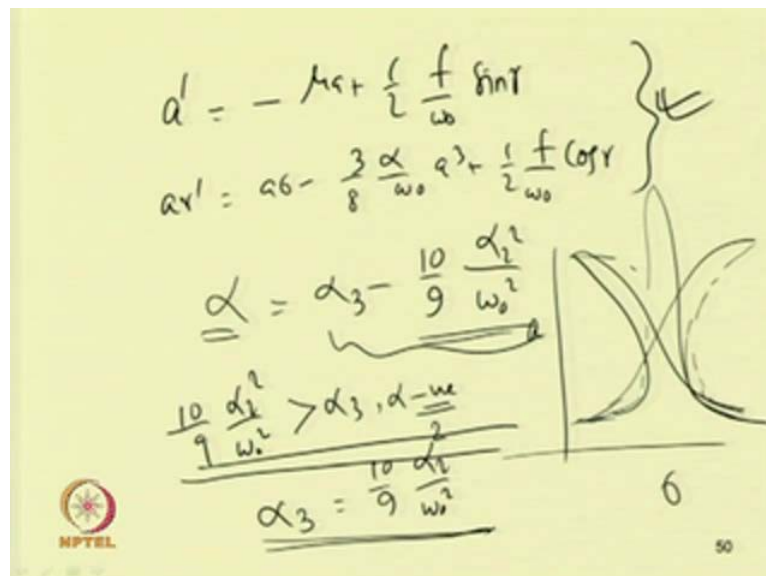 a' = - μa + 1/2 f/ω₀ sinγ
aγ' = aσ - 3/8 α/ω₀ a³ + 1/2 f/ω₀ cosγ
α = α₃ - 10/9 α₂²/ω₀²
a
10/9 α₂²/ω₀² > α₃, α -ve
α₃ = 10/9 α₂²/ω₀²
σ
NPTEL
50